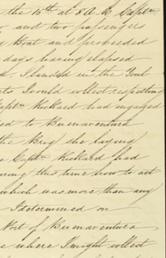 the 10th at 8 A.M. Captn
and two passengers
Boat and proceeded
days having elapsed
Island in the Gulf
I could collect respecting
Captn Rickard had engaged
to Buenaventura
the Brig she laying
Captn Rickard had
during this time how to act
which was more than any
I determined on
Port of Buenaventura
where I might collect